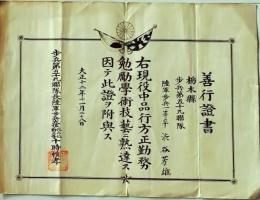 善行證書
栃木縣
歩兵第五十九聯隊
陸軍歩兵一等卒 渋谷芳雄
右現役中品行方正勤務
勉勵學術技藝ニ熟達ス
因テ此證ヲ附與ス
大正十二年十一月二十八日
歩兵第五十九聯隊長陸軍歩兵大佐